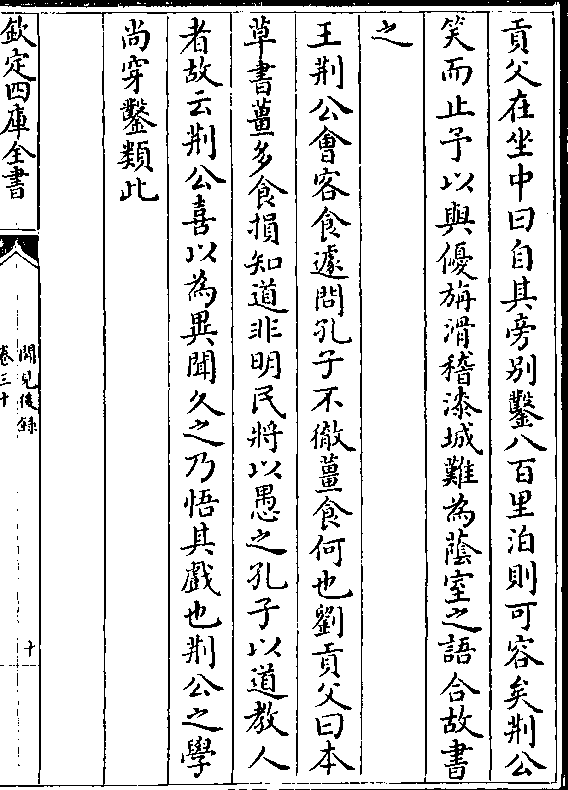 貢父在坐中曰自其旁别鑿八百里泊則可容矣荆公
笑而止予以與優旃滑稽漆城難為蔭室之語合故書
之
王荆公會客食遽問孔子不徹薑食何也劉貢父曰本
草書薑多食損知道非明民將以愚之孔子以道教人
者故云荆公喜以為異聞久之乃悟其戲也荆公之學
尚穿鑿類此
欽定四庫全書
聞見後錄
卷三十
十